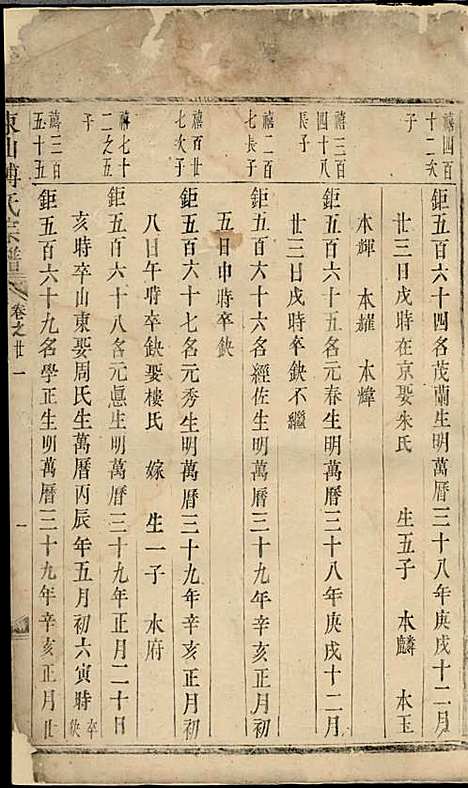 禧四百
十二次
子
鉅五百六十四名茂蘭生明萬曆三十八年庚戌十二月
廿三日戌時在京娶朱氏 生五子 本麟 本玉
本輝 本耀 本煒
禧三百
四十八
長子
鉅五百六十五名元春生明萬曆三十八年庚戌十二月
廿三日戌時卒缺不繼
禧一百
七長子
鉅五百六十六名經佐生明萬曆三十九年辛亥正月初
五日申時卒缺
禧百廿
七次子
鉅五百六十七名元秀生明萬曆三十九年辛亥正月初
八日午時卒缺娶樓氏 嫁 生一子 本府
禧七十
二之五
子
鉅五百六十八名元憑生明萬曆三十九年正月二十日
亥時卒山東娶周氏生萬曆丙辰年五月初六寅時卒缺
禧二百
五十五
鉅五百六十九名學正生明萬曆三十九年辛亥正月廿
東山傅氏宗譜 卷之廿一
一